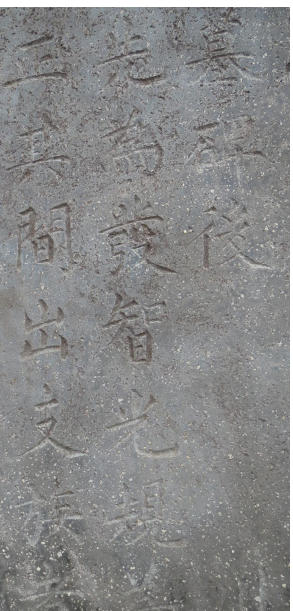 墓碑後
先為發智光規
三其間出支族